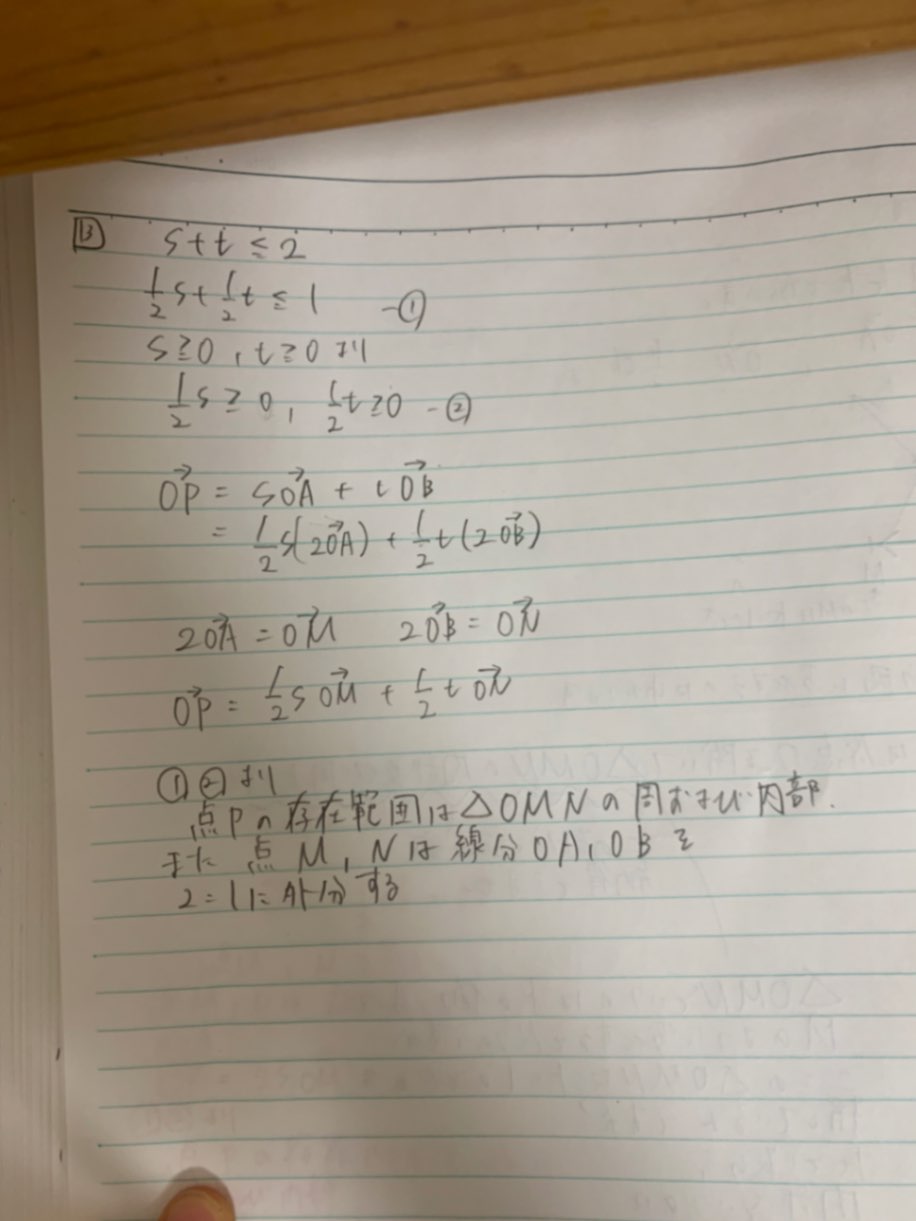 13 s+t≦2
1/2 s+1/2 t≦1 -①
s≧0, t≧0 より
1/2 s≧0, 1/2 t≧0 -②
OP→ = sOA→ + tOB→
= 1/2 s(2OA→) + 1/2 t(2OB→)
2OA→ = OM→ 2OB→ = ON→
OP→ = 1/2 s OM→ + 1/2 t ON→
①②より
点Pの存在範囲は△OMNの周および内部.
また 点 M, Nは線分OA, OBを
2:1に外分する